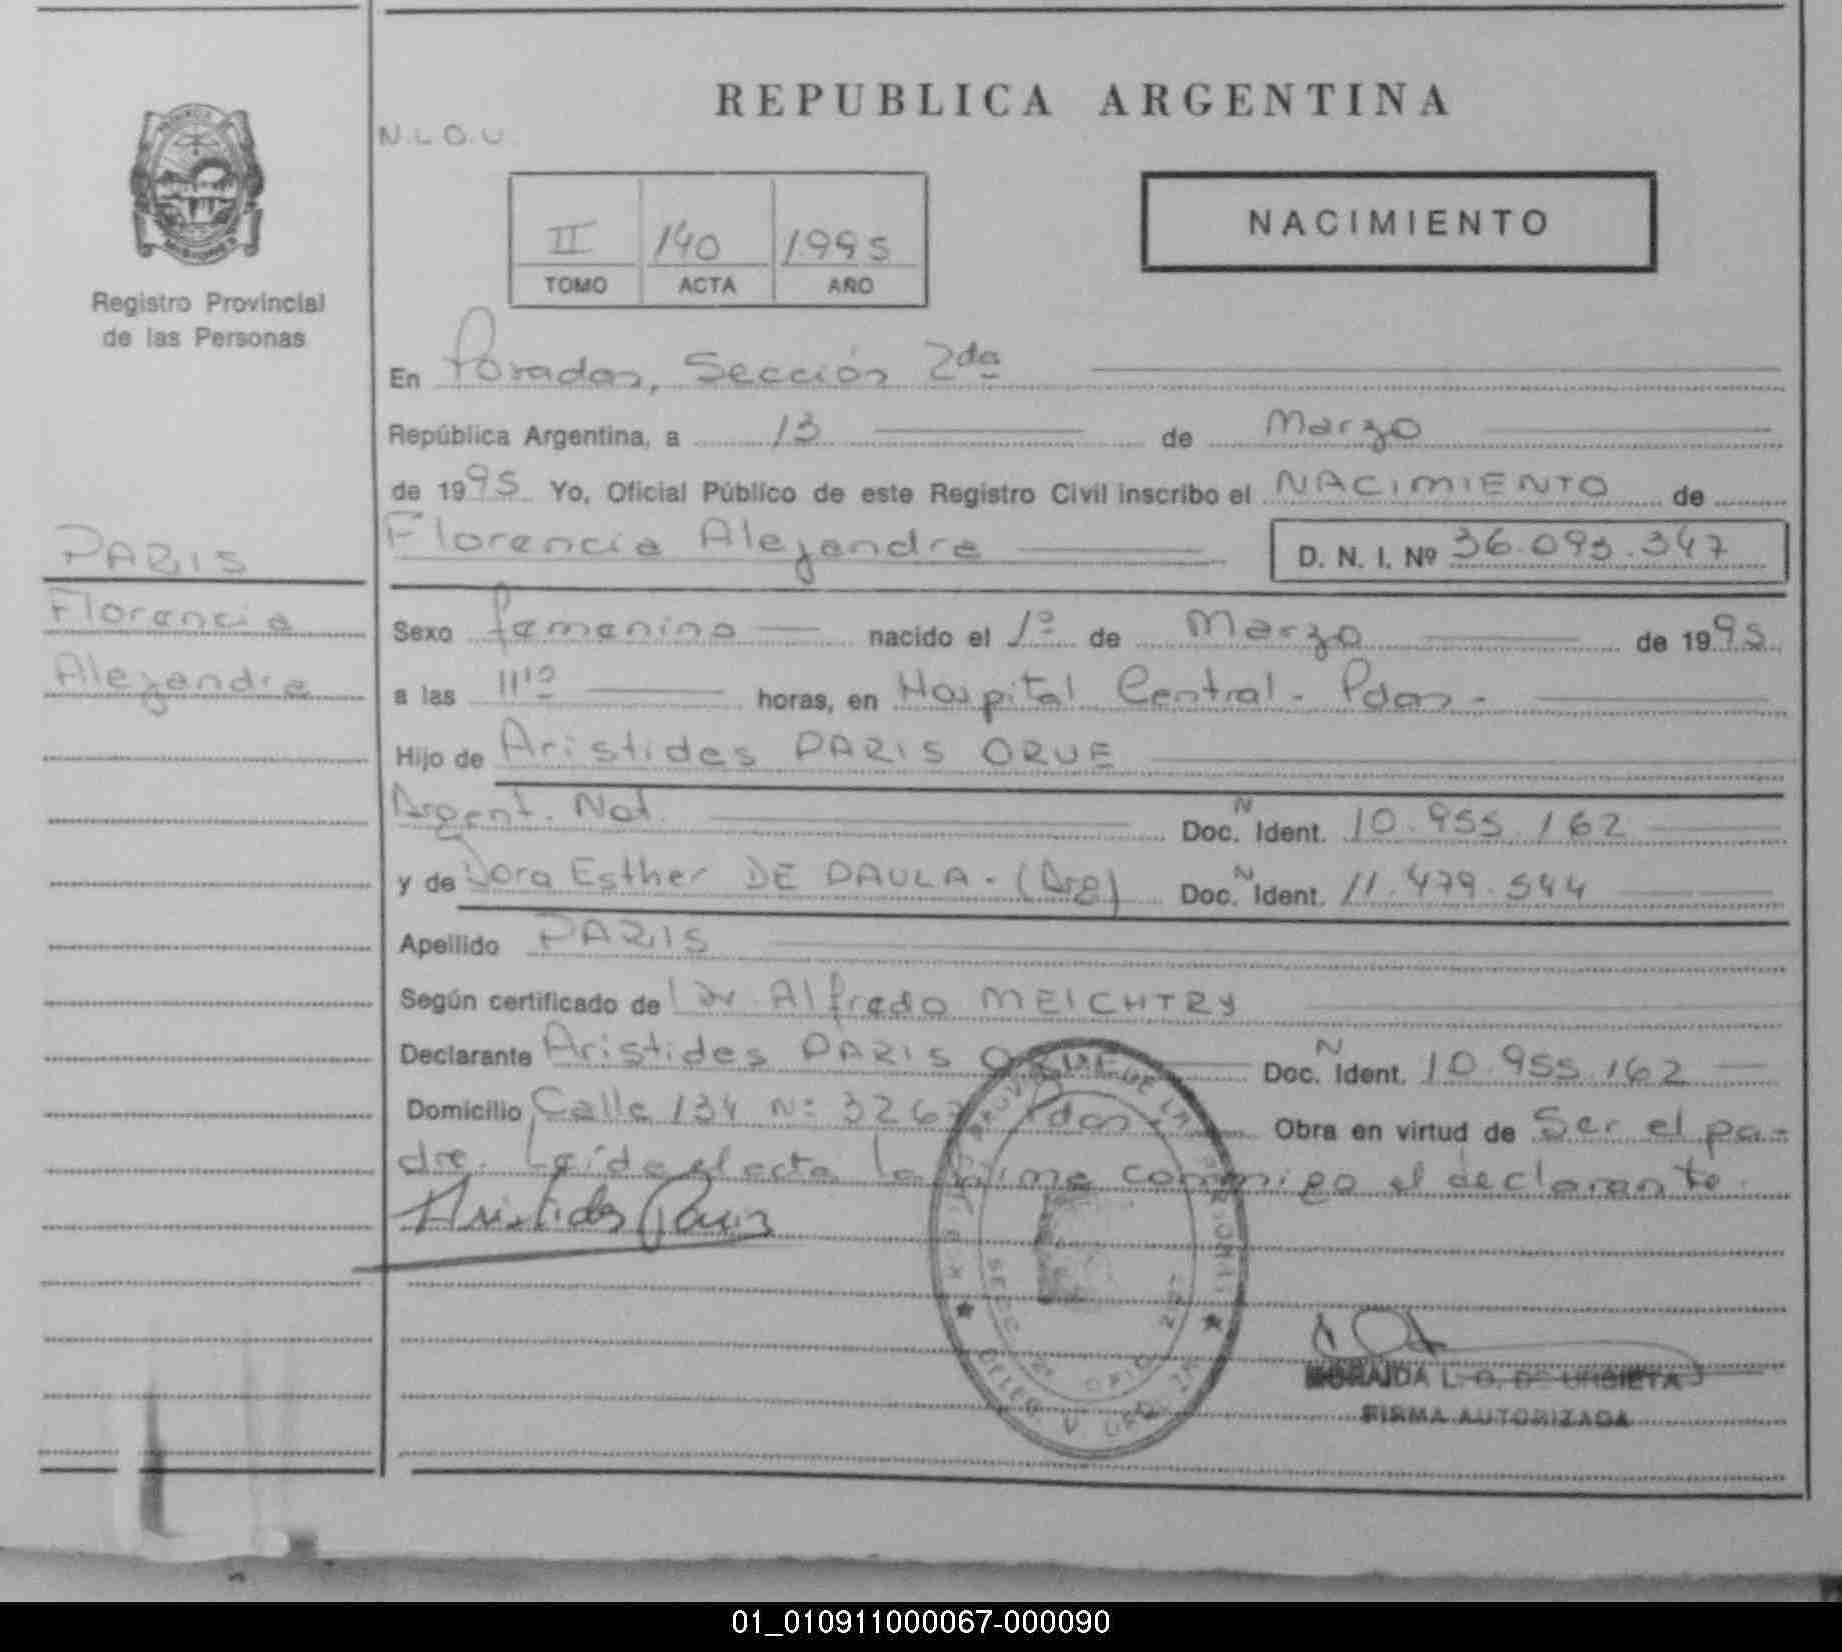 REPUBLICA ARGENTINA
N.L.O.U.
NACIMIENTO
II 140 1995
TOMO ACTA AÑO
Registro Provincial
de las Personas
En Posadas, Sección 2da
República Argentina, a 13 de Marzo
de 1995 Yo, Oficial Público de este Registro Civil inscribo el NACIMIENTO de
Florencia Alejandra D. N. I. Nº 36.095.347
PARIS
Florencia
Alejandra
Sexo femenino nacido el 1º de Marzo de 1995
a las 11 10 horas, en Hospital Central - Pdas -
Hijo de Aristides PARIS ORUE
Argent. Nat. Doc. N Ident. 10.955.162
y de Dora Esther DE PAULA - (Arg) Doc. N Ident. 11.479.544
Apellido PARIS
Según certificado de Dr. Alfredo MEICHTRY
Declarante Aristides PARIS Doc. N Ident. 10.955.162
Domicilio Calle 134 Nº 326 Pdas - Obra en virtud de Ser el pa-
dre. Leída el acta la firma conmigo el declarante.
Aristides Paris
L. O. DE URBIETA
FIRMA AUTORIZADA
01_010911000067-000090